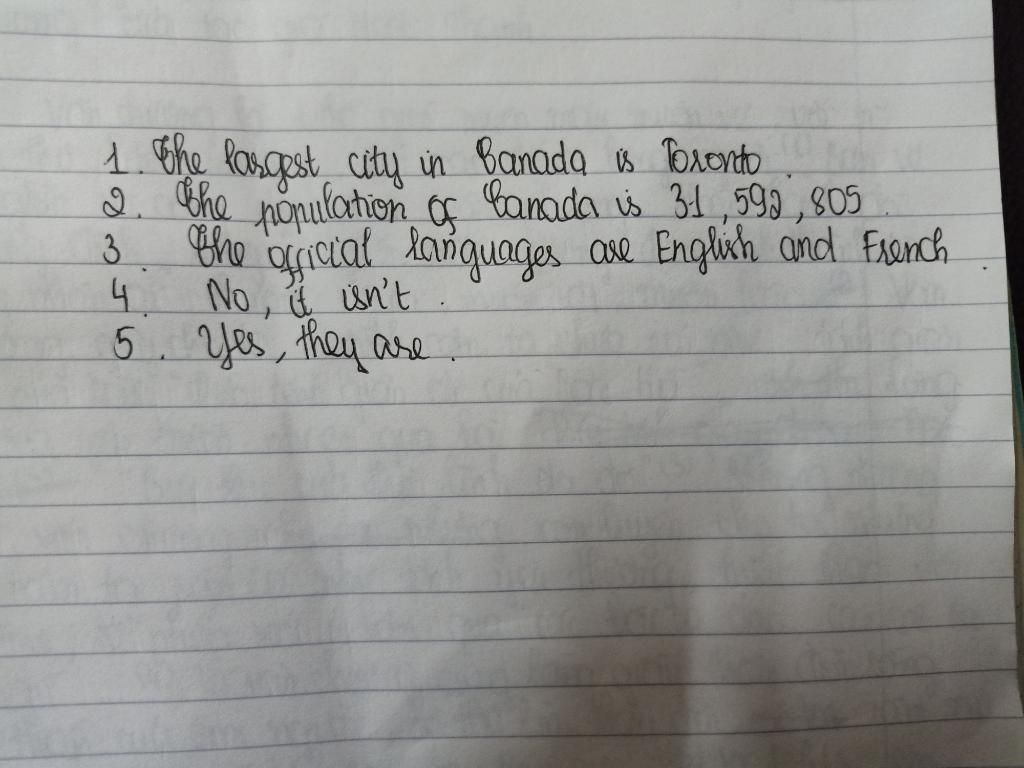 1. The largest city in Canada is Toronto.
2. The population of Canada is 31,592,805.
3. The official languages are English and French.
4. No, it isn't.
5. Yes, they are.